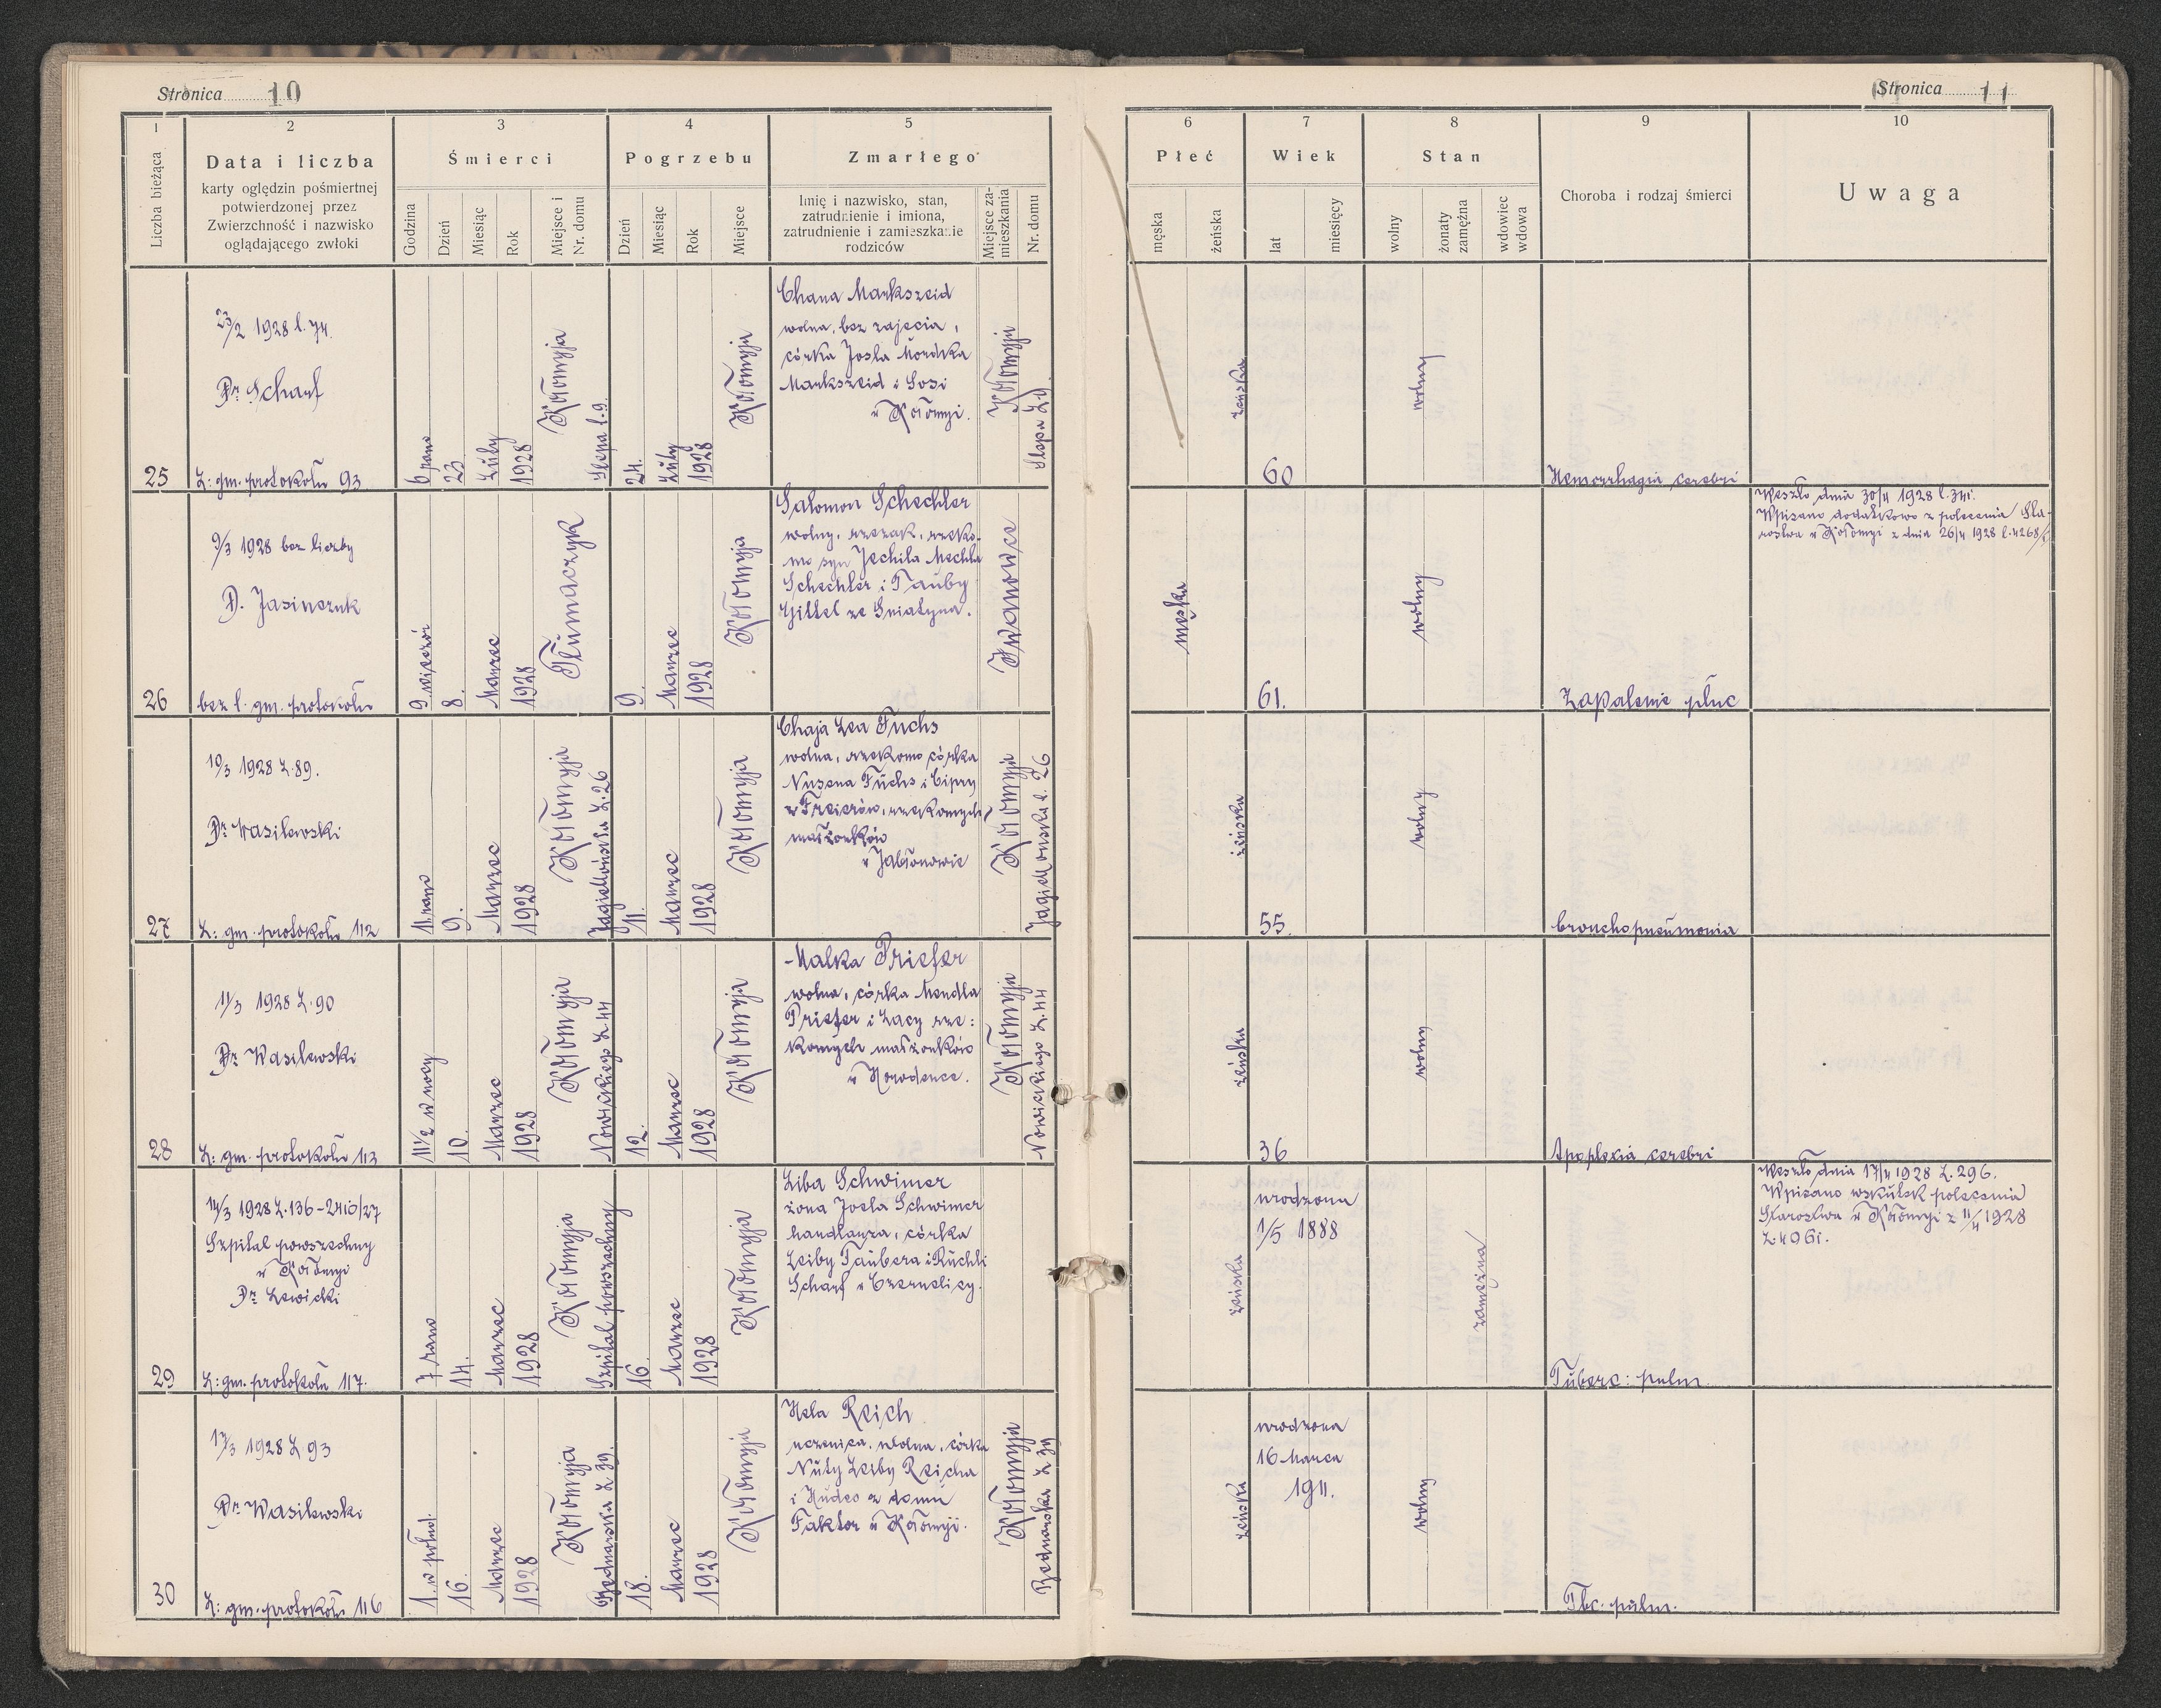 Stronica 10
1
2
3
4
5
Liczba bieżąca
Data i liczba
karty oględzin pośmiertnej
potwierdzonej przez
Zwierzchność i nazwisko
oglądającego zwłoki
Śmierci
Godzina
Dzień
Miesiąc
Rok
Miejsce i
Nr. domu
Pogrzebu
Dzień
Miesiąc
Rok
Miejsce
Zmarłego
Imię i nazwisko, stan,
zatrudnienie i imiona,
zatrudnienie i zamieszkanie
rodziców
Miejsce za-
mieszkania
Nr. domu
25
23/2 1928 l. 74.
Dr Scharf
L: gm. protokołu 93
6 rano
23
Luty
1928
Kołomyja
Ślepa l. 9.
24.
Luty
1928
Kołomyja
Chana Markszeid
wolna, bez zajęcia,
córka Josla Mordka
Markszeid i Sosi
w Kołomyi.
Kołomyja
Ślepa L 9.
26
9/3 1928 bez liczby
D. Jasinczuk
bez l. gm. protokołu
9 wieczór
8.
Marzec
1928
Tłumaczyk
9.
Marzec
1928
Kołomyja
Salomon Schechter
wolny, rzezak, rzeko-
mo syn Jechila Mechla
Schechter i Tauby
Gittel ze Śniatyna.
Iwanowce
27
10/3 1928 L. 89.
Dr Wasilewski
L: gm. protokołu 112
11 rano
9.
Marzec
1928
Kołomyja
Jagiellońska L. 26
11.
Marzec
1928
Kołomyja
Chaja Lea Fuchs
wolna, rzekomo córka
Nusena Fuchs i Cipry
z Freierów, rzekomych
małżonków
w Jabłonowie
Kołomyja
Jagiellońska l. 26
28
11/3 1928 L. 90
Dr Wasilewski
L: gm. protokołu 113
11 1/2 w nocy
10.
Marzec
1928
Kołomyja
Nowickiego L. 44
12.
Marzec
1928
Kołomyja
Malka Priefer
wolna, córka Mendla
Priefer i Lacy rze:
komych małżonków
w Horodence.
Kołomyja
Nowickiego L. 44
29
14/3 1928 L. 136-2410/27
Szpital powszechny
w Kołomyi
Dr Lewicki
L: gm. protokołu 117.
7 rano
14.
Marzec
1928
Kołomyja
Szpital powszechny
16.
Marzec
1928
Kołomyja
Liba Schwimer
żona Josla Schwimer
handlarza, córka
Leiby Taubera i Ruchli
Scharf w Czernelicy.
30
17/3 1928 L 93
Dr Wasilewski
L: gm. protokołu 116
1. w połud.
16.
Marzec
1928
Kołomyja
Bednarska L 39.
18.
Marzec
1928
Kołomyja
Hela Reich
uczenica, wolna, córka
Nuty Leiby Reicha
i Hudes z domu
Faktor w Kołomyji.
Kołomyja
Bednarska L 39
Stronica 11
6
7
8
9
10
Płeć
męska
żeńska
Wiek
lat
miesięcy
Stan
wolny
żonaty
zamężna
wdowiec
wdowa
Choroba i rodzaj śmierci
Uwaga
żeńska
60
wolny
Hemorrhagia cerebri
męska
61.
wolny
Zapalenie płuc
Weszło dnia 30/4 1928 l. 341.
Wpisano dodatkowo z polecenia Sta-
rostwa w Kołomyi z dnia 26/4 1928 l. 4268/
żeńska
55.
wolny
bronchopneumonia
żeńska
36
wolny
Apoplexia cerebri
żeńska
urodzona
1/5 1888
zamężna
Tuberc: pulm.
Weszło dnia 17/4 1928 L. 296.
Wpisano wskutek polecenia
Starostwa w Kołomyi z 11/4 1928
L. 4961.
żeńska
urodzona
16 Marca
1911.
wolny
Tbc. pulm.